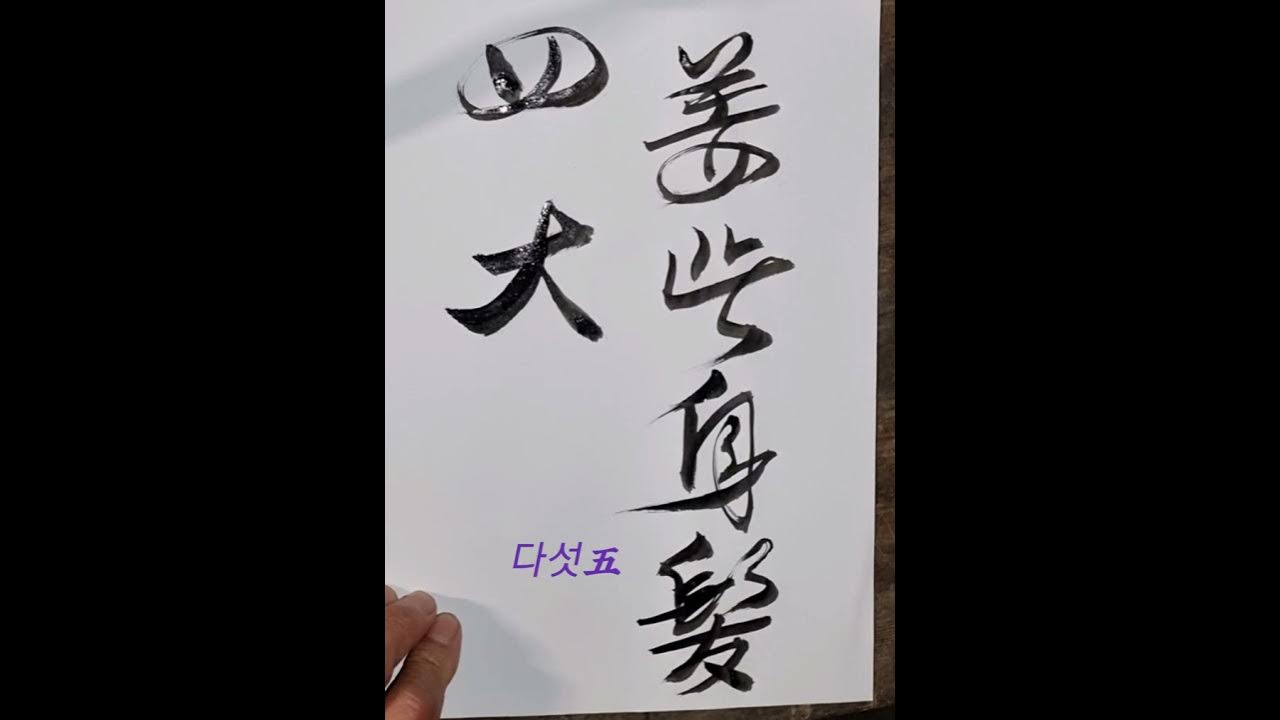 盖此身髮
四大
다섯五